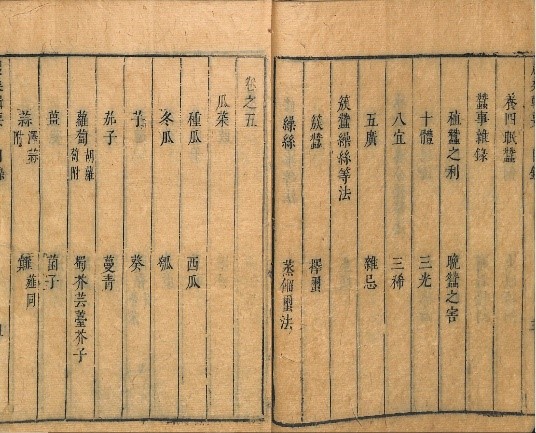 養四眠蠶
蠶事雜錄
稙蠶之利 晚蠶之害
十體 三光
八宜 三稀
五廣 雜忌
簇蠶繰絲等法
簇蠶 擇繭
繰絲 蒸餾繭法
卷之五
瓜菜
種瓜 西瓜
冬瓜 瓠
芋 葵
茄子 蔓青
蘿蔔 胡蘿蔔附 蜀芥芸薹芥子
薑 菌子
蒜 澤蒜附 薤同